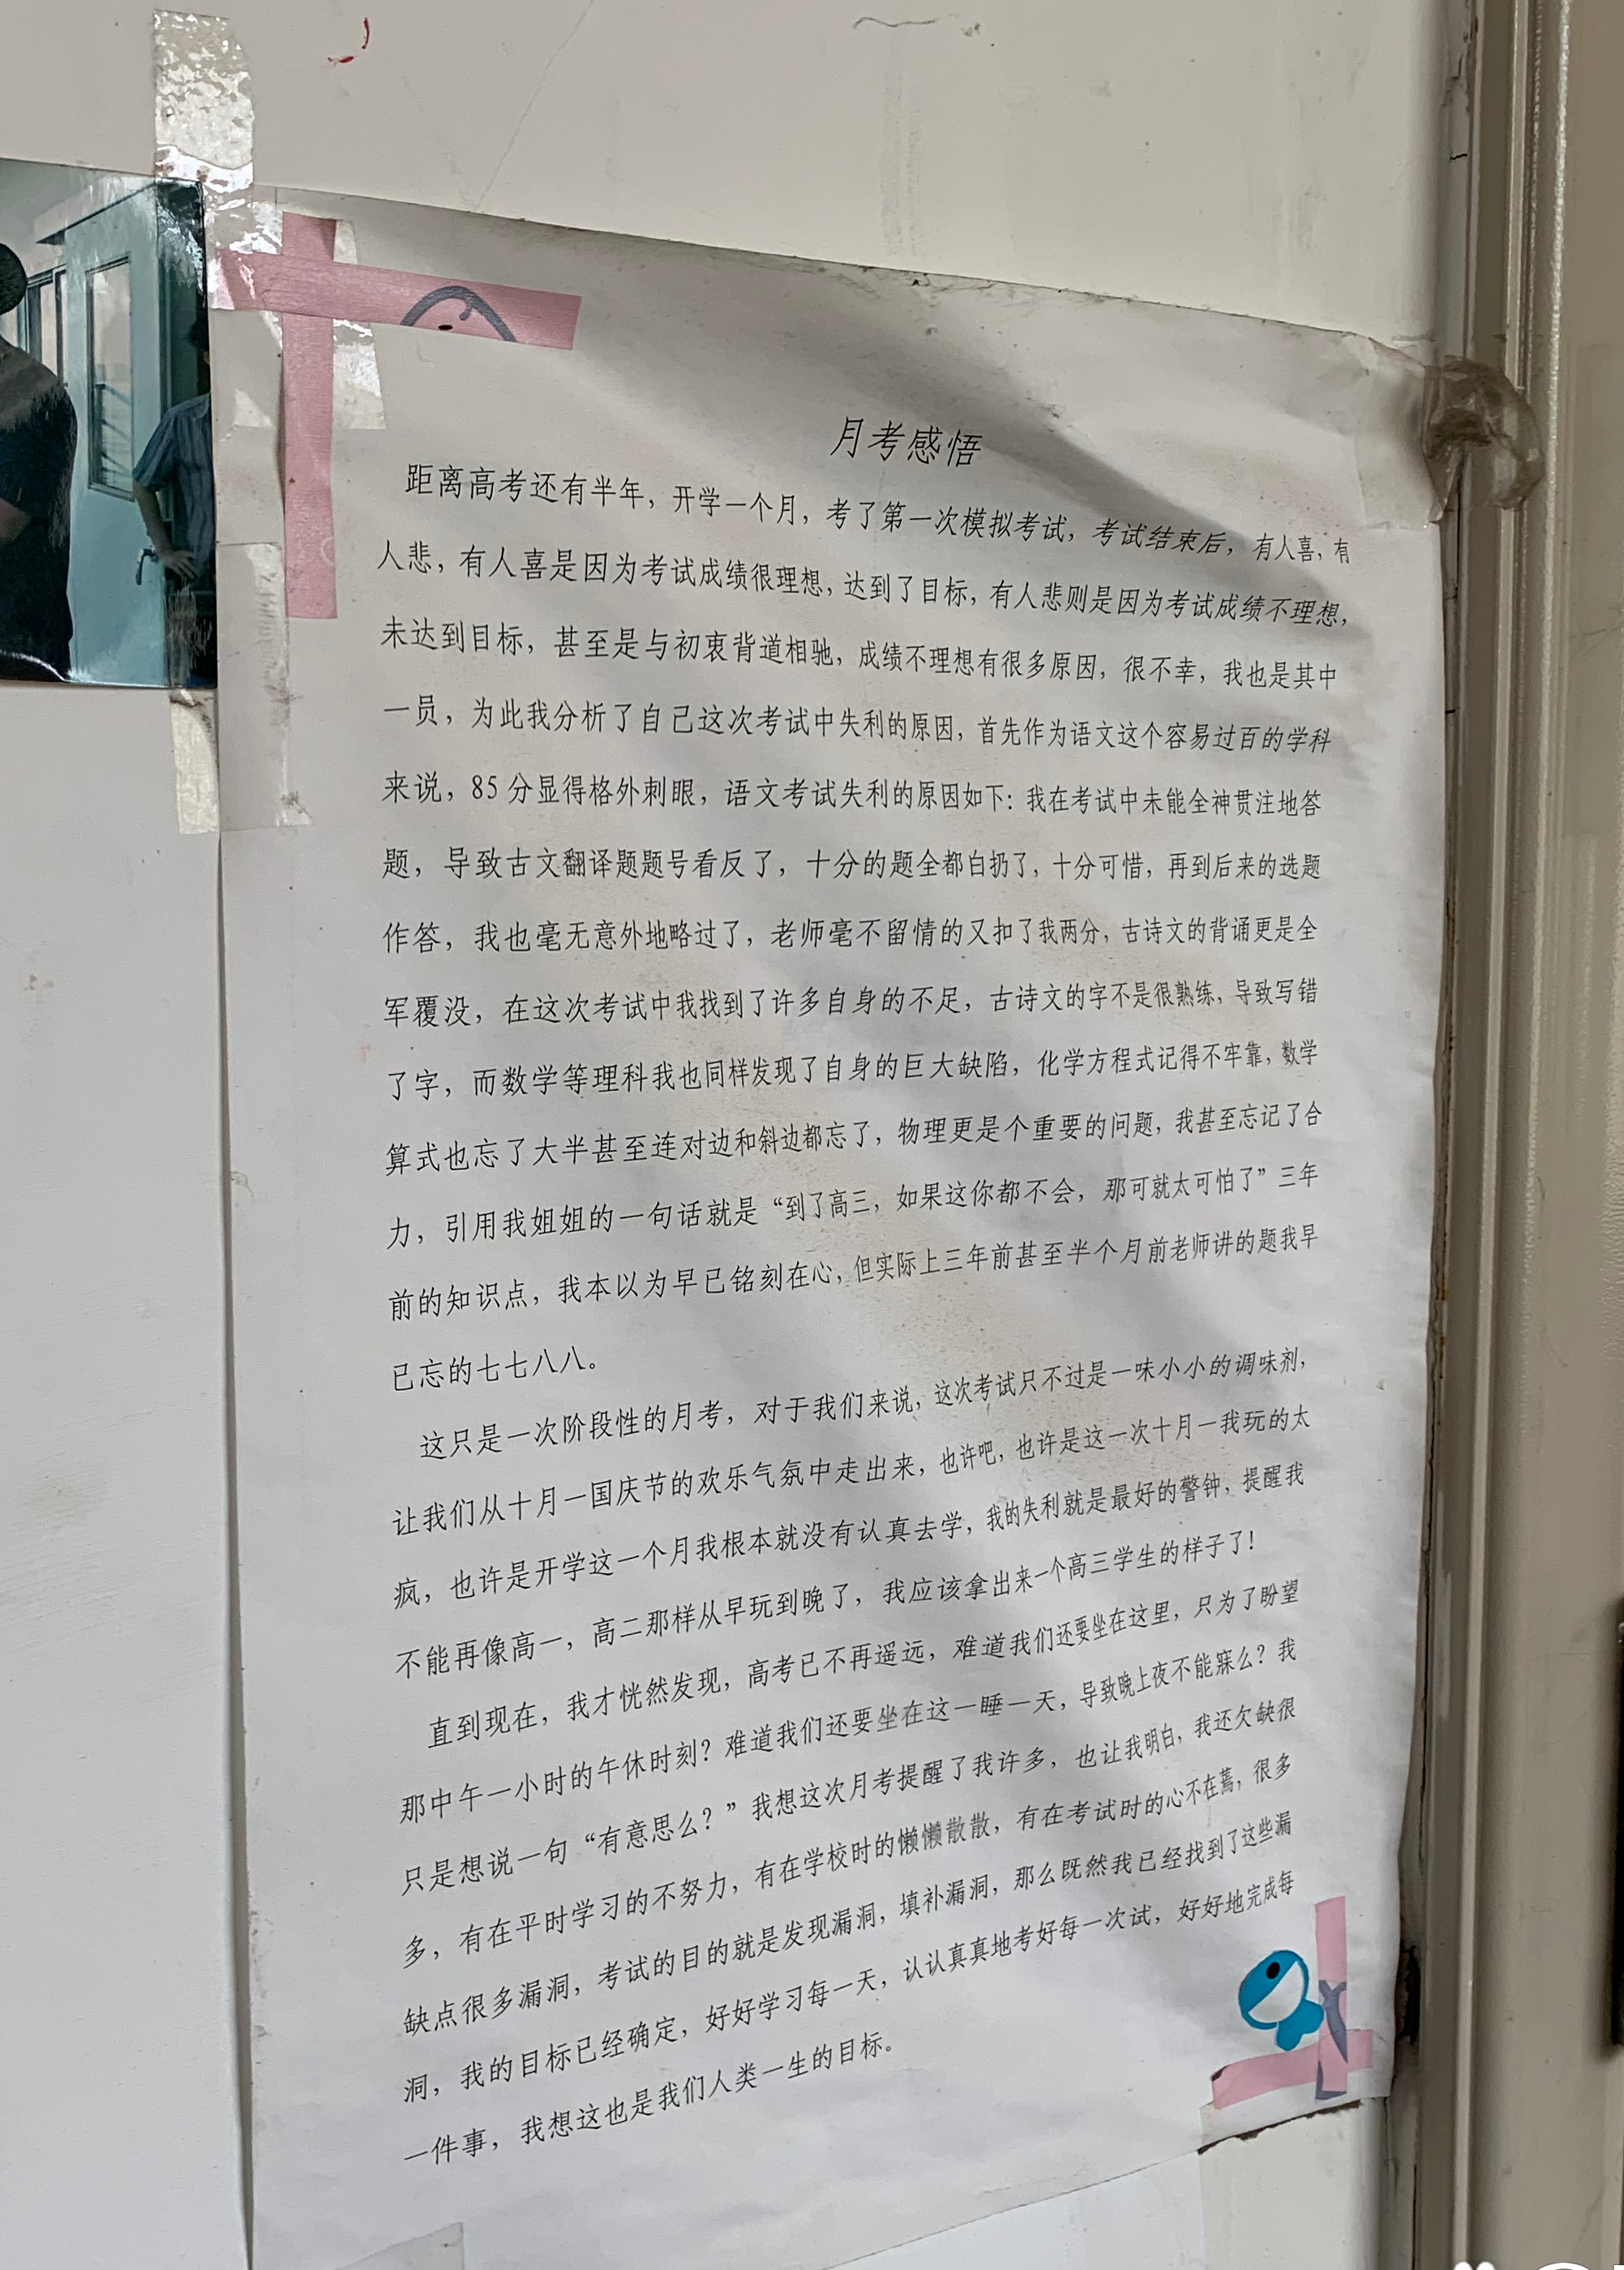 月考感悟
距离高考还有半年，开学一个月，考了第一次模拟考试，考试结束后，有人喜，有
人悲，有人喜是因为考试成绩很理想，达到了目标，有人悲则是因为考试成绩不理想，
未达到目标，甚至是与初衷背道相驰，成绩不理想有很多原因，很不幸，我也是其中
一员，为此我分析了自己这次考试中失利的原因，首先作为语文这个容易过百的学科
来说，85分显得格外刺眼，语文考试失利的原因如下：我在考试中未能全神贯注地答
题，导致古文翻译题题号看反了，十分的题全都白扔了，十分可惜，再到后来的选题
作答，我也毫无意外地略过了，老师毫不留情的又扣了我两分，古诗文的背诵更是全
军覆没，在这次考试中我找到了许多自身的不足，古诗文的字不是很熟练，导致写错
了字，而数学等理科我也同样发现了自身的巨大缺陷，化学方程式记得不牢靠，数学
算式也忘了大半甚至连对边和斜边都忘了，物理更是个重要的问题，我甚至忘记了合
力，引用我姐姐的一句话就是“到了高三，如果这你都不会，那可就太可怕了”三年
前的知识点，我本以为早已铭刻在心，但实际上三年前甚至半个月前老师讲的题我早
已忘的七七八八。
这只是一次阶段性的月考，对于我们来说，这次考试只不过是一味小小的调味剂，
让我们从十月一国庆节的欢乐气氛中走出来，也许吧，也许是这一次十月一我玩的太
疯，也许是开学这一个月我根本就没有认真去学，我的失利就是最好的警钟，提醒我
不能再像高一，高二那样从早玩到晚了，我应该拿出来一个高三学生的样子了！
直到现在，我才恍然发现，高考已不再遥远，难道我们还要坐在这里，只为了盼望
那中午一小时的午休时刻？难道我们还要坐在这一睡一天，导致晚上夜不能寐么？我
只是想说一句“有意思么？”我想这次月考提醒了我许多，也让我明白，我还欠缺很
多，有在平时学习的不努力，有在学校时的懒懒散散，有在考试时的心不在蔫，很多
缺点很多漏洞，考试的目的就是发现漏洞，填补漏洞，那么既然我已经找到了这些漏
洞，我的目标已经确定，好好学习每一天，认认真真地考好每一次试，好好地完成每
一件事，我想这也是我们人类一生的目标。